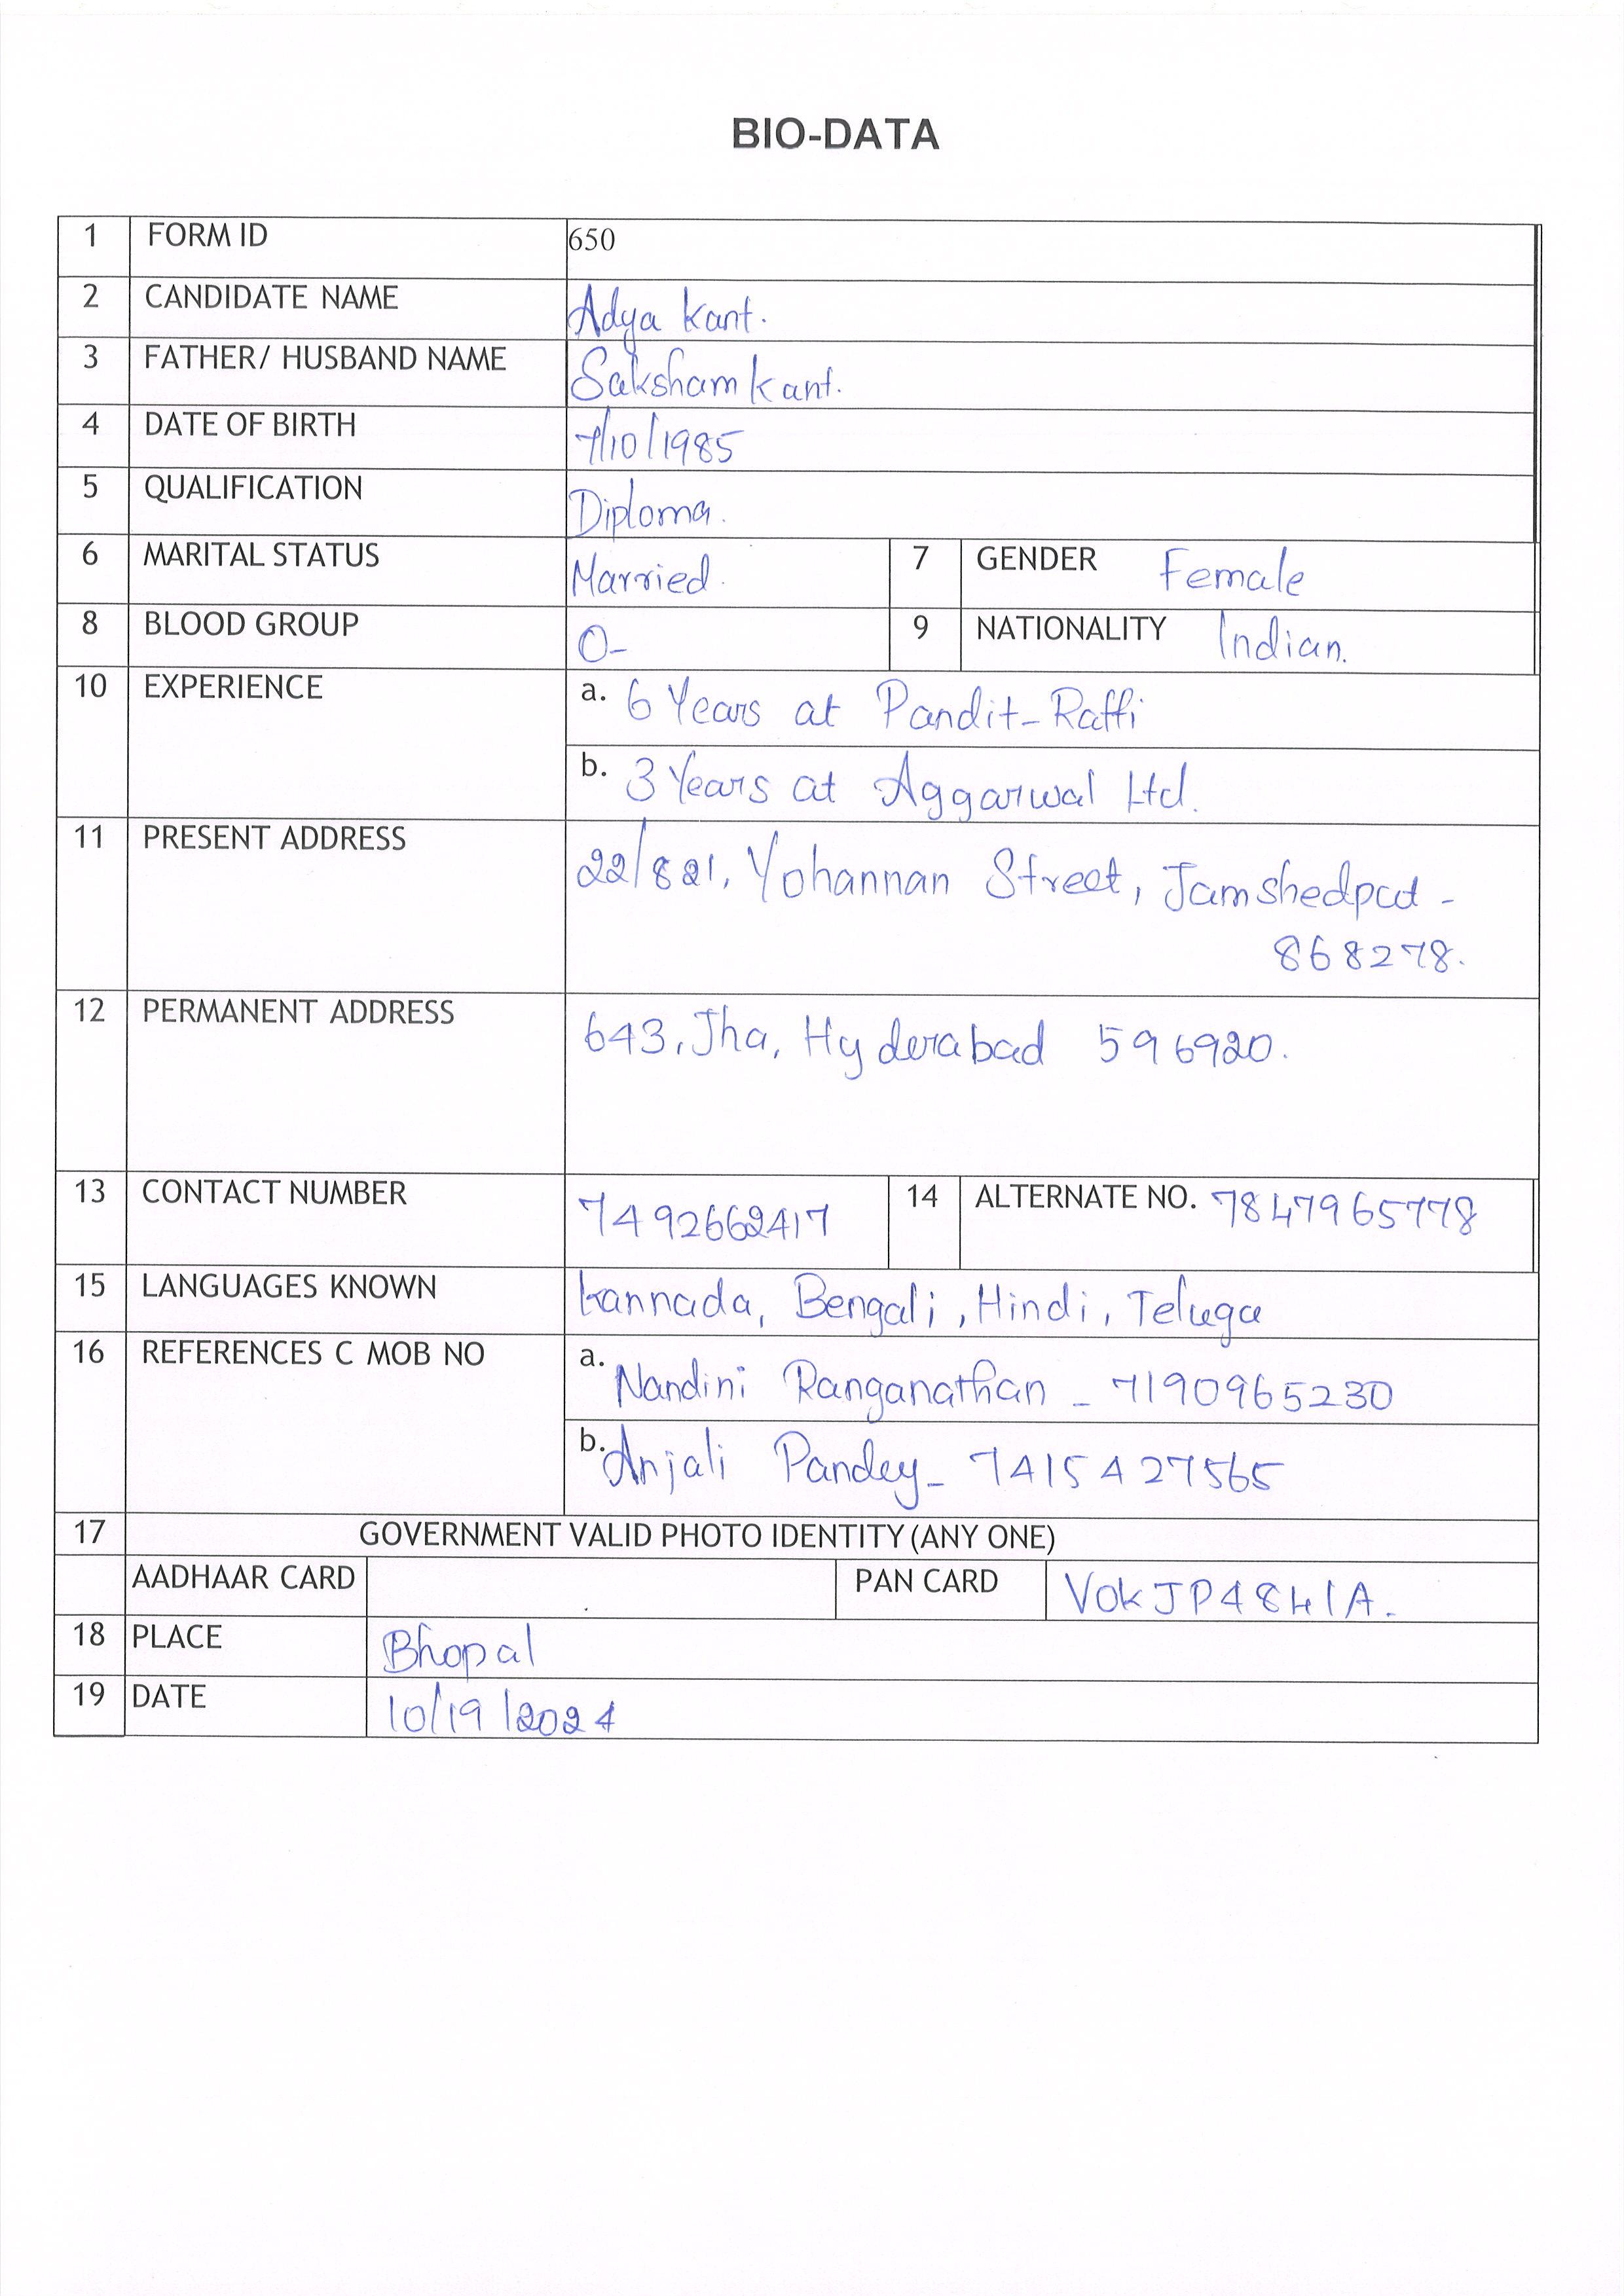 BIO-DATA
1 FORM ID 650
2 CANDIDATE NAME Adya Kant.
3 FATHER/ HUSBAND NAME Saksham Kant.
4 DATE OF BIRTH 7/10/1985
5 QUALIFICATION Diploma.
6 MARITAL STATUS Married. 7 GENDER Female
8 BLOOD GROUP O- 9 NATIONALITY Indian.
10 EXPERIENCE a. 6 Years at Pandit-Raffi
b. 3 Years at Aggarwal Ltd.
11 PRESENT ADDRESS 22/821, Yohannan Street, Jamshedpat -
868278.
12 PERMANENT ADDRESS 643, Jha, Hyderabad 596920.
13 CONTACT NUMBER 7492662417 14 ALTERNATE NO. 7847965778
15 LANGUAGES KNOWN Kannada, Bengali, Hindi, Teluga
16 REFERENCES C MOB NO a. Nandini Ranganathan - 7190965230
b. Anjali Pandey - 7415427565
17 GOVERNMENT VALID PHOTO IDENTITY (ANY ONE)
AADHAAR CARD PAN CARD VOKJP4841A.
18 PLACE Bhopal
19 DATE 10/19/2024